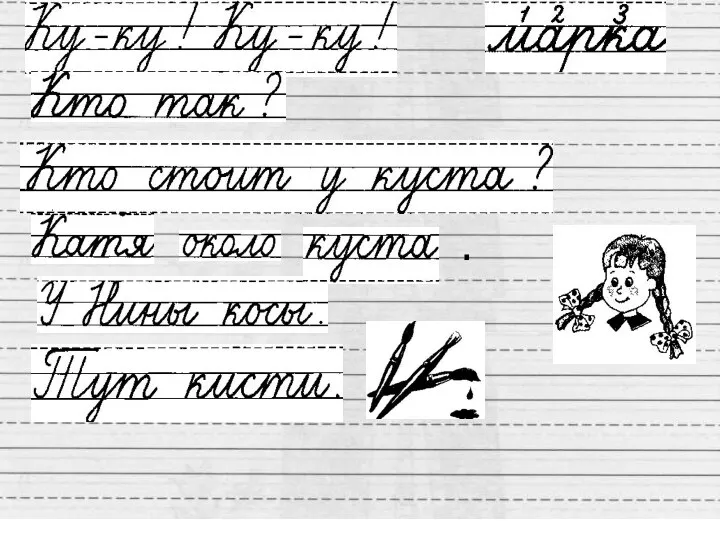 Ку-ку! Ку-ку!
1 2 3
марка
Кто так?
Кто стоит у куста?
Катя около куста .
У Нины косы.
Тут кисти.